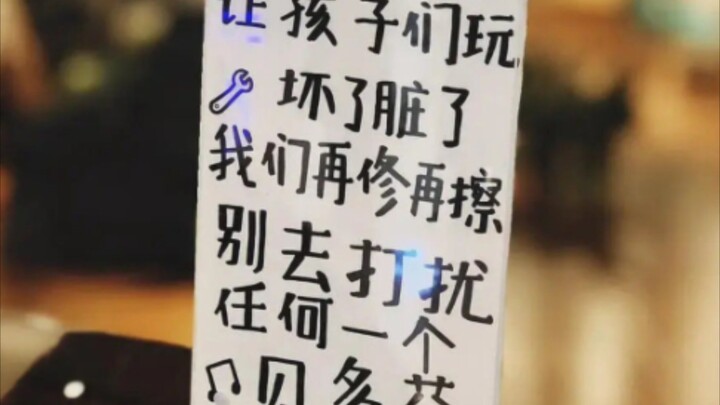 让孩子们玩
坏了脏了
我们再修再擦
别去打扰
任何一个
贝多芬